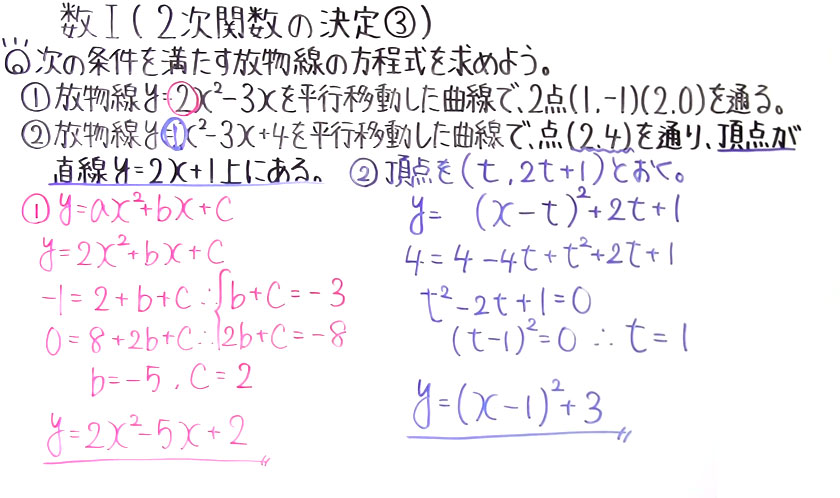 数Ⅰ(2次関数の決定③)
Q 次の条件を満たす放物線の方程式を求めよう。
①放物線y=2x²-3xを平行移動した曲線で、2点(1,-1)(2,0)を通る。
②放物線y=1x²-3x+4を平行移動した曲線で、点(2,4)を通り、頂点が
直線y=2x+1上にある。
①y=ax²+bx+c
y=2x²+bx+c
-1=2+b+c ∴{b+c=-3
0=8+2b+c ∴{2b+c=-8
b=-5, c=2
y=2x²-5x+2
②頂点を(t, 2t+1)とおく。
y= (x-t)²+2t+1
4=4-4t+t²+2t+1
t²-2t+1=0
(t-1)²=0 ∴ t=1
y=(x-1)²+3